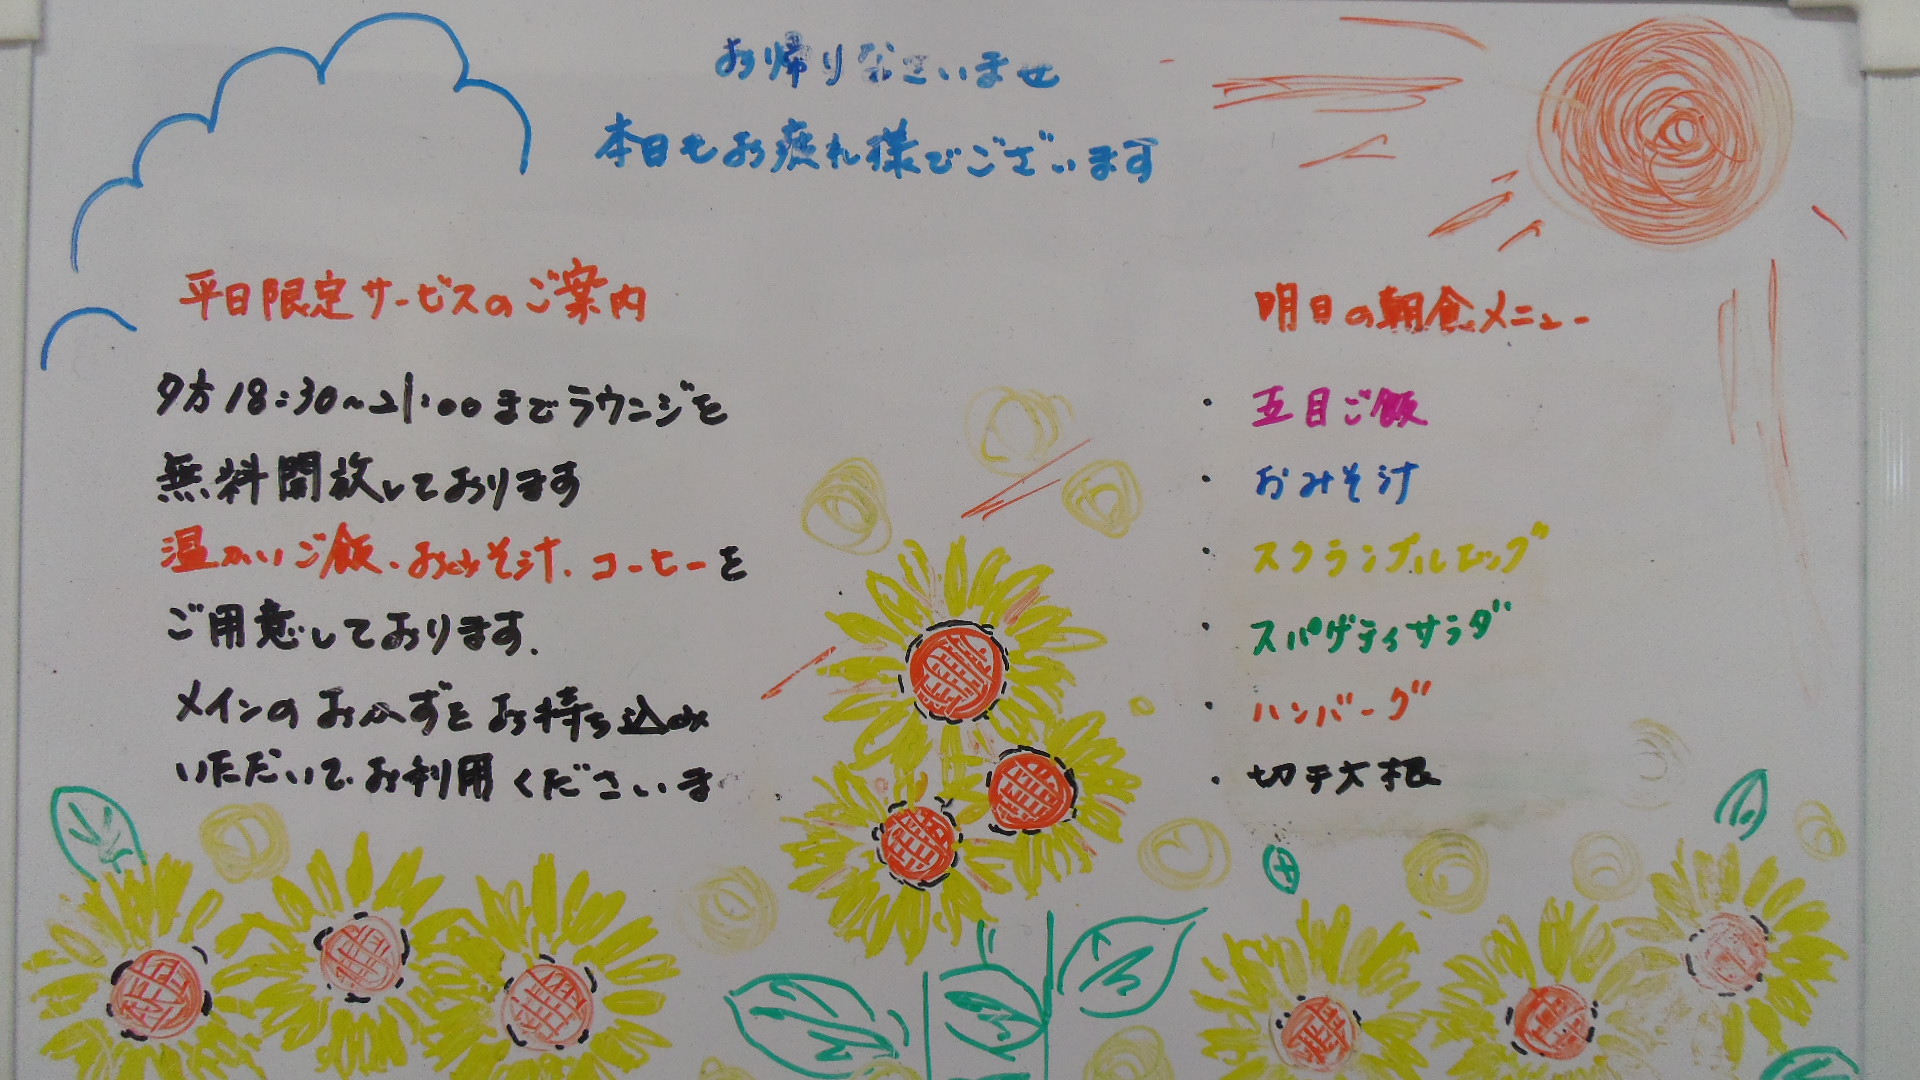 お帰りなさいませ
本日もお疲れ様でございます
平日限定サービスのご案内
夕方18:30〜21:00までラウンジを
無料開放しております
温かいご飯、おみそ汁、コーヒーを
ご用意しております.
メインのおかずをお持ち込み
いただいて、お利用くださいま
明日の朝食メニュー
・五目ご飯
・おみそ汁
・スクランブルエッグ
・スパゲティサラダ
・ハンバーグ
・切干大根